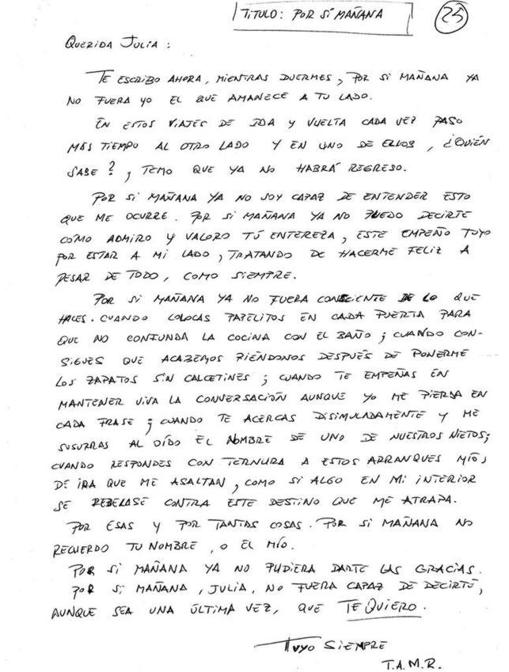 TITULO: POR SI MAÑANA
25
QUERIDA JULIA:
TE ESCRIBO AHORA, MIENTRAS DUERMES, POR SI MAÑANA YA
NO FUERA YO EL QUE AMANECE A TU LADO.
EN ESTOS VIAJES DE IDA Y VUELTA CADA VEZ PASO
MÁS TIEMPO AL OTRO LADO Y EN UNO DE ELLOS, ¿QUIÉN
SABE?, TEMO QUE YA NO HABRÁ REGRESO.
POR SI MAÑANA YA NO SOY CAPAZ DE ENTENDER ESTO
QUE ME OCURRE. POR SI MAÑANA YA NO PUEDO DECIRTE
CÓMO ADMIRO Y VALORO TÚ ENTEREZA, ESTE EMPEÑO TUYO
POR ESTAR A MI LADO, TRATANDO DE HACERME FELIZ A
PESAR DE TODO, COMO SIEMPRE.
POR SI MAÑANA YA NO FUERA CONSCIENTE DE LO QUE
HACES. CUANDO COLOCAS PAPELITOS EN CADA PUERTA PARA
QUE NO CONFUNDA LA COCINA CON EL BAÑO; CUANDO CON-
SIGUES QUE ACABEMOS RIÉNDONOS DESPUÉS DE PONERME
LOS ZAPATOS SIN CALCETINES; CUANDO TE EMPEÑAS EN
MANTENER VIVA LA CONVERSACIÓN AUNQUE YO ME PIERDA EN
CADA FRASE; CUANDO TE ACERCAS DISIMULADAMENTE Y ME
SUSURRAS AL OÍDO EL NOMBRE DE UNO DE NUESTROS NIETOS;
CUANDO RESPONDES CON TERNURA A ESTOS ARRANQUES MÍOS,
DE IRA QUE ME ASALTAN, COMO SI ALGO EN MI INTERIOR
SE REBELASE CONTRA ESTE DESTINO QUE ME ATRAPA.
POR ESAS Y POR TANTAS COSAS. POR SI MAÑANA NO
RECUERDO TU NOMBRE, O EL MÍO.
POR SI MAÑANA YA NO PUDIERA DARTE LAS GRACIAS.
POR SI MAÑANA, JULIA, NO FUERA CAPAZ DE DECIRTE,
AUNQUE SEA UNA ÚLTIMA VEZ, QUE TE QUIERO.
TUYO SIEMPRE
T.A.M.R.